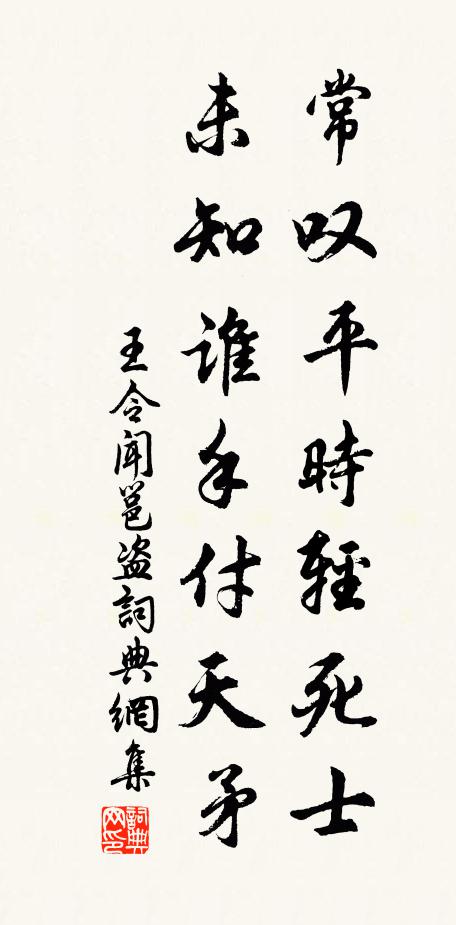 常叹平時輕死士
未知誰手付天矛
王令聞邕盗詞典網集
詞典網印